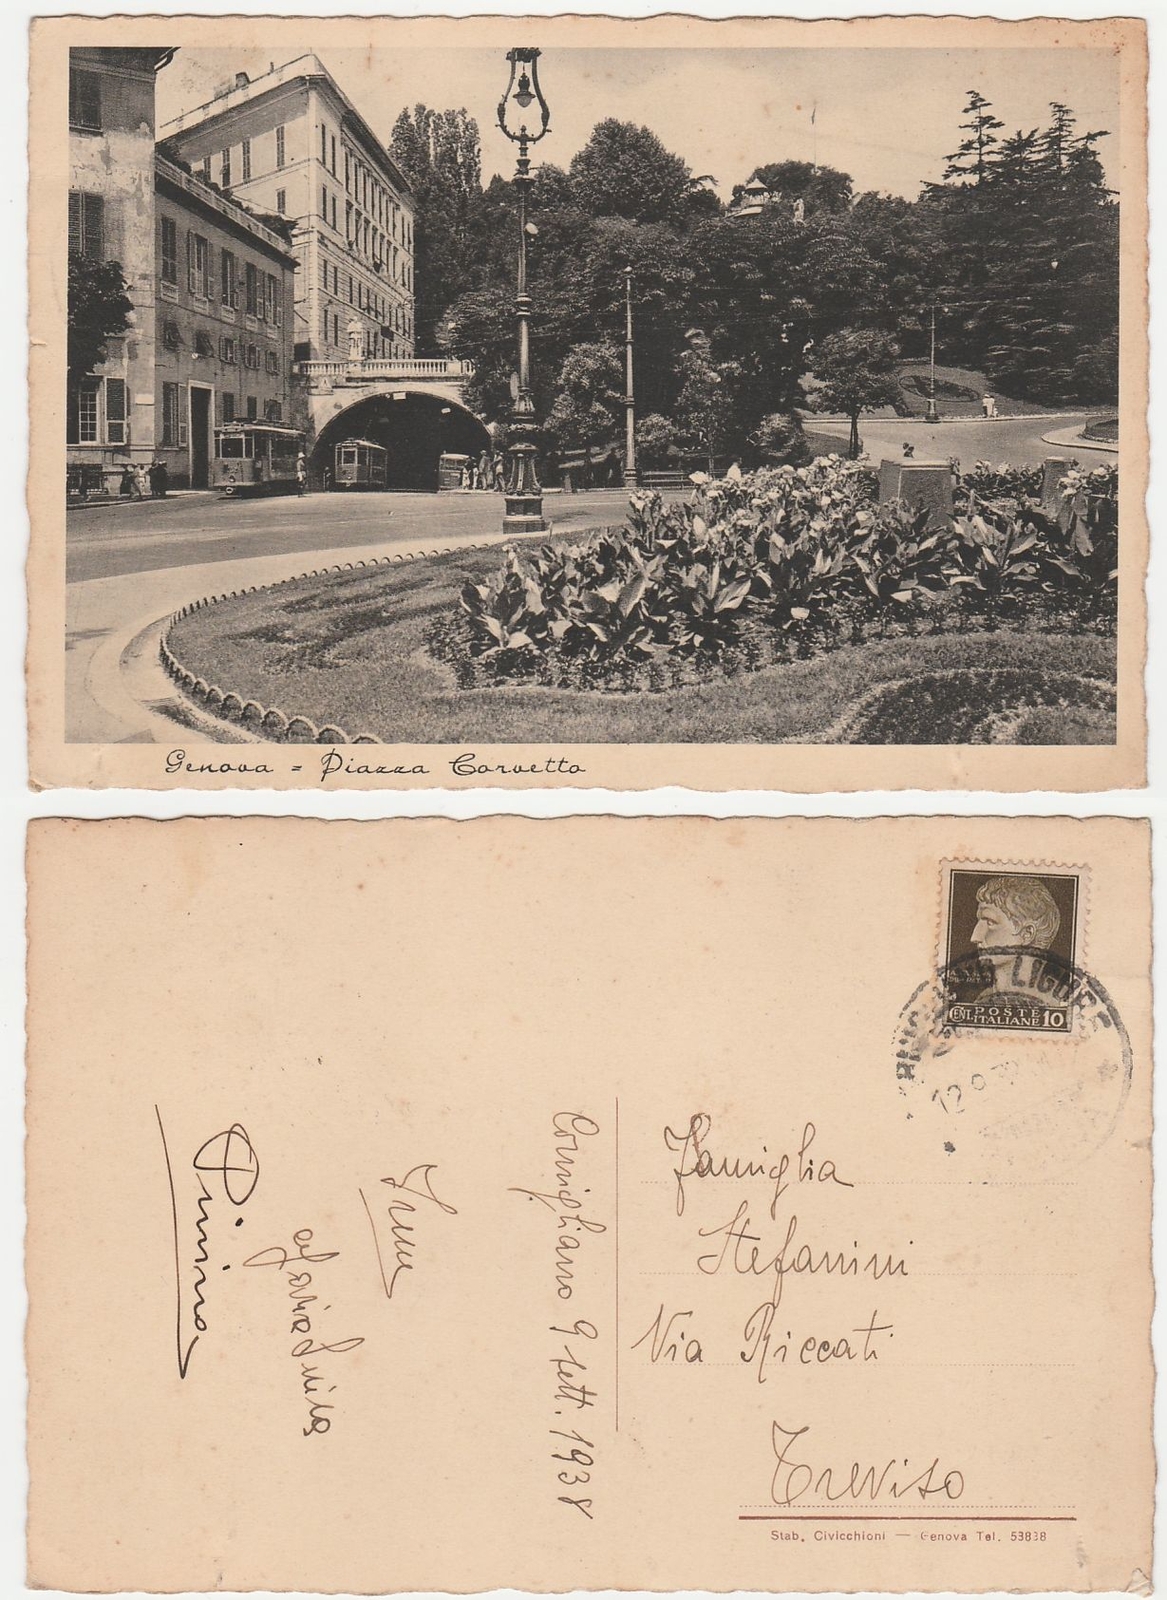 Genova = Piazza Corvetto
LIGURE
POSTE
CENT. ITALIANE 10
12
Famiglia
Stefanini
Via Riccati
Treviso
Cornigliano 9 sett. 1938
Irma
Maria Luisa
Pinina
Stab. Civicchioni — Genova Tel. 53838